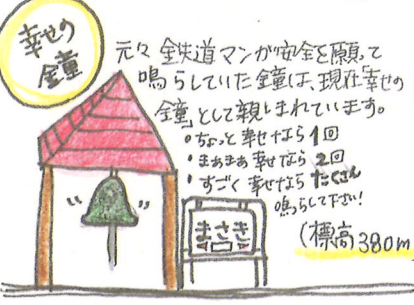 幸せの
鐘
元々鉄道マンが安全を願って
鳴らしていた鐘は、現在「幸せの
鐘」として親しまれています。
・ちょっと幸せなら1回
・まぁまぁ幸せなら2回
・すごく幸せならたくさん
鳴らして下さい!
まさき
(標高380m